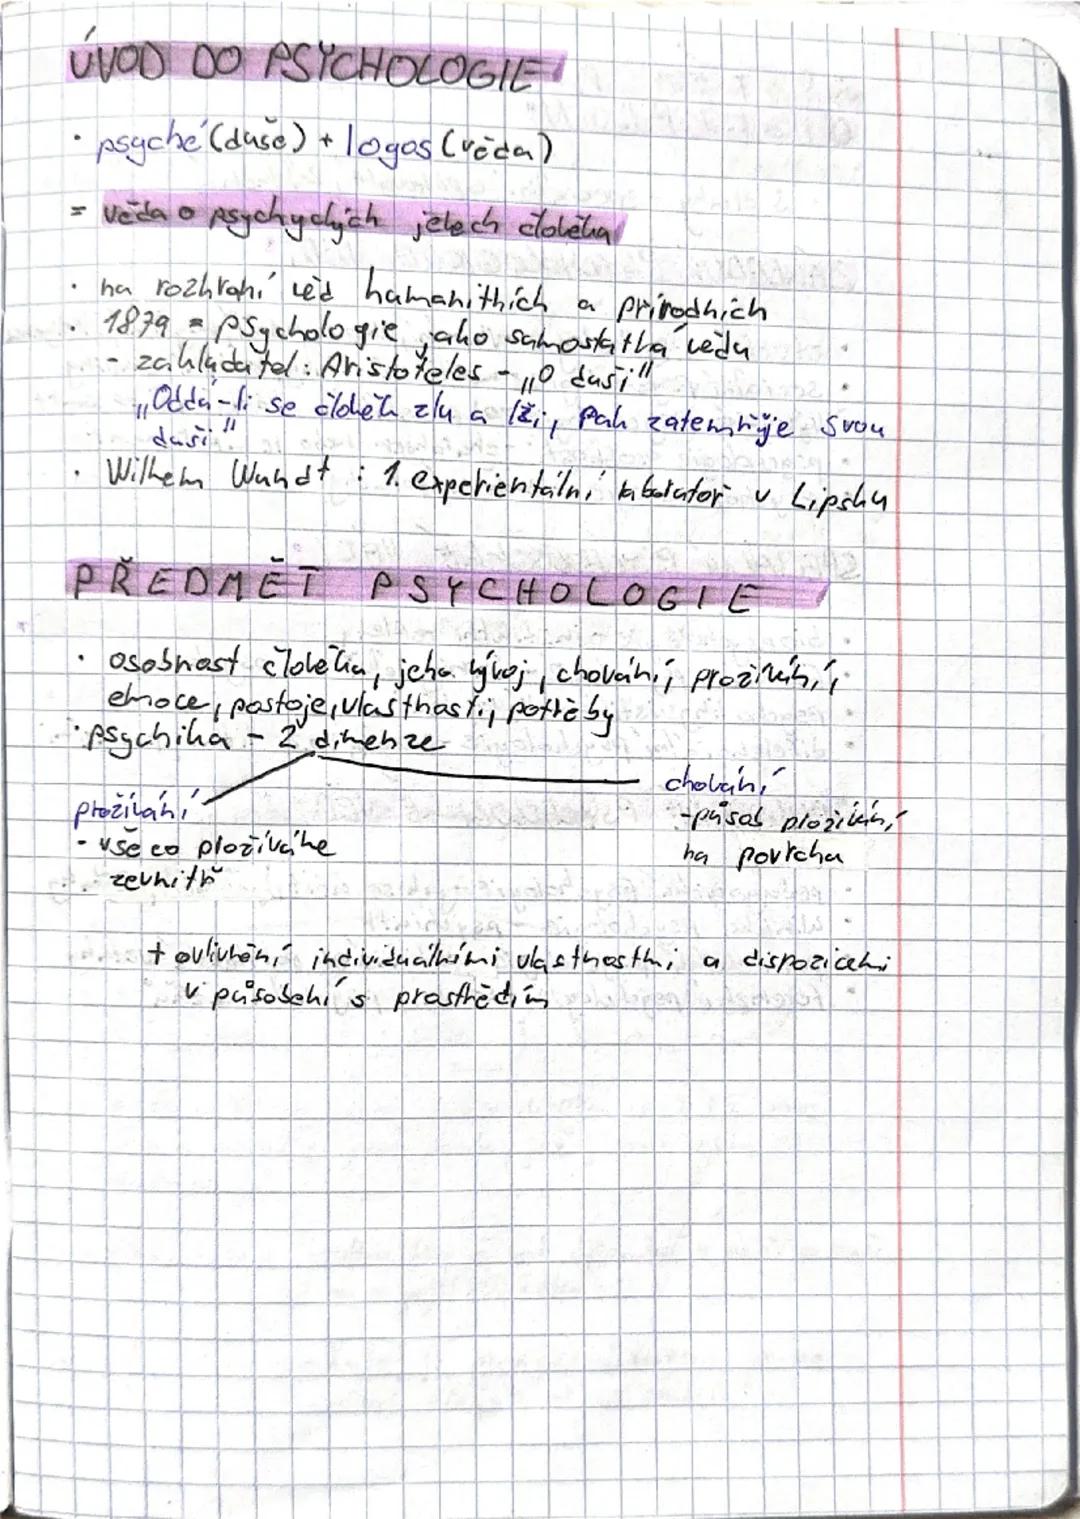 ÚVOD DO PSYCHOLOGIE
• psyché (duše) + logos (věda)
= věda o psychyckých jevech člověka
• na rozhraní věd humanitních a přírodních
• 1879 = psychologie jako samostatná věda
- zakladatel: Aristoteles - „O duši"
„Oddá-li se člověk zlu a lži, pak zatemňuje svou
duši"
• Wilhem Wundt : 1. experientální laboratoř v Lipsku
PŘEDMĚT PSYCHOLOGIE
• osobnost člověka, jeho vývoj, chování, prožívání,
emoce, postoje, vlastnosti, potřeby
• psychika - 2 dimenze
prožívání
- vše co prožíváme
zevnitř
chování
- působ prožívání
na povrcha
+ ovlivnění individuálními vlastnostmi a dispozicemi
v působení s prostředím